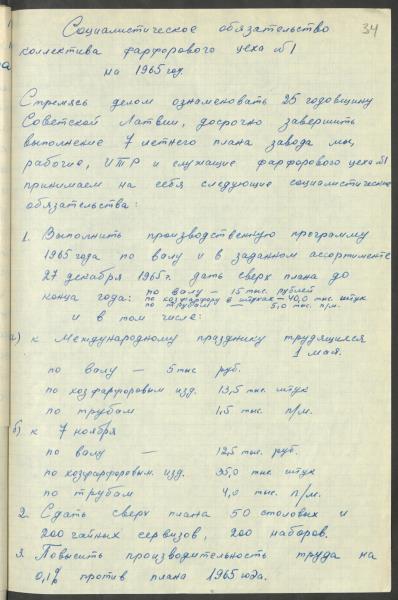 34
Социалистическое обязательство
коллектива фарфорового цеха №1
на 1965 год.
Стремясь делом ознаменовать 25 годовщину
Советской Латвии, досрочно завершить
выполнение 7 летнего плана завода мы,
рабочие, ИТР и служащие фарфорового цеха №1
принимаем на себя следующие социалистические
обязательства:
1. Выполнить производственную программу
1965 года по валу и в заданном ассортименте
27 декабря 1965 г. дать сверх плана до
конца года: по валу — 15 тыс. рублей
по хозфарфору в штуках — 40,0 тыс. штук
по трубам — 5,0 тыс. п/м.
и в том числе:
а) к Международному празднику трудящихся
1 мая.
по валу — 5 тыс руб.
по хозфарфоровым изд. 13,5 тыс. штук
по трубам 1,5 тыс. п/м.
б) к 7 ноября
по валу — 12,5 тыс. руб.
по хозфарфоровым. изд. 35,0 тыс штук
по трубам 4,0 тыс. п/м.
2. Сдать сверх плана 50 столовых и
200 чайных сервизов, 200 наборов.
3. Повысить производительность труда на
0,1% против плана 1965 года.